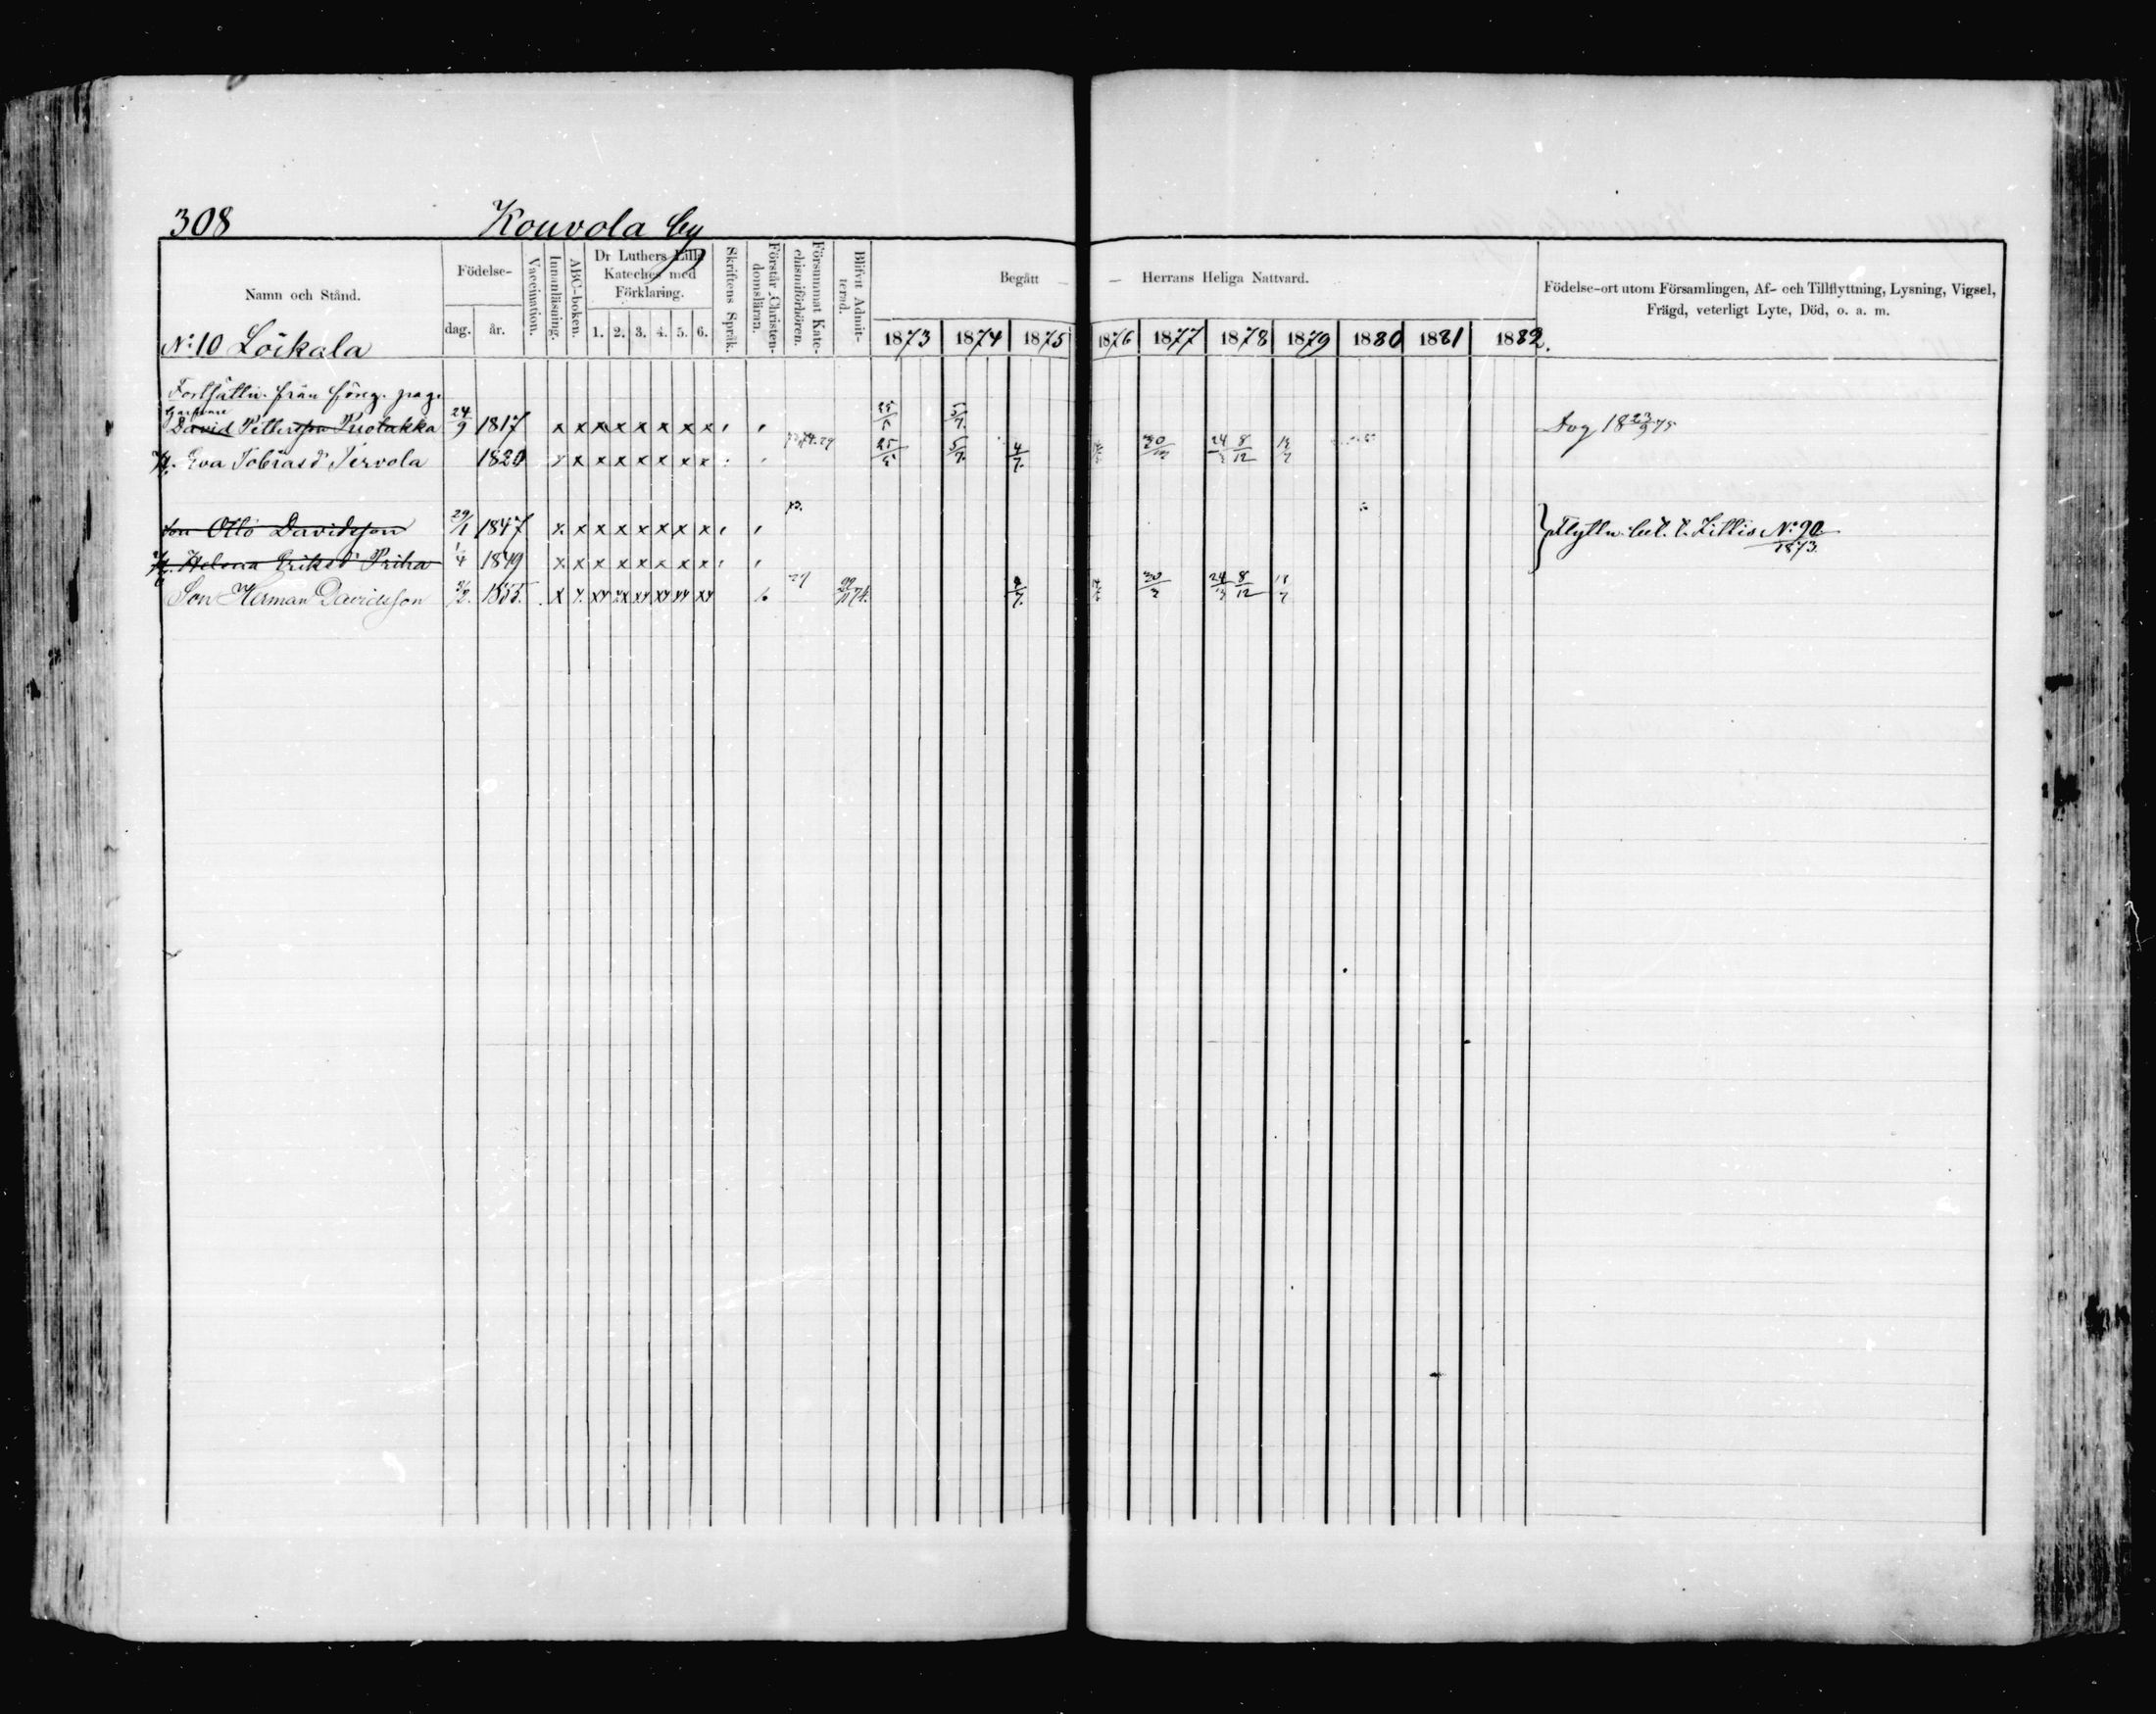 308 Kouvola by
Namn och Stånd.
Födelse-
dag. år.
Vaccination.
Innanläsning.
ABC-boken.
Dr Luthers Lilla
Kateches med
Förklaring.
1. 2. 3. 4. 5. 6.
Skriftens Språk.
Förstår Christen-
domsläran.
Försummat Kate-
chismiförhören.
Blifvit Admit-
terad.
Begått — — Herrans Heliga Nattvard.
1873 1874 1875 1876 1877 1878 1879 1880 1881 1882.
Födelse-ort utom Församlingen, Af- och Tillflyttning, Lysning, Vigsel,
Frägd, veterligt Lyte, Död, o. a. m.
No 10 Loikala
Fortsättn. från föreg. pag.
David Pettersson Puolakka 24/9 1817 x x x x x x x x 25/5 5/7 Dog 18 23/9 75
H. Eva Tobiasd Tervola 1820 x x x x x x x x 25/5 5/7 4/7 30/3 24/3 8/12
Son Otto Davidsson 29/1 1847 x x x x x x x x Flyttn. bet. t. Zittis No 90
1873.
H. Helena Eriksd Priha 1849 x x x x x x x x
Son Herman Davidsson 1855. x x xx xx xx xx xx xx 4/7 30/3 24/3 8/12